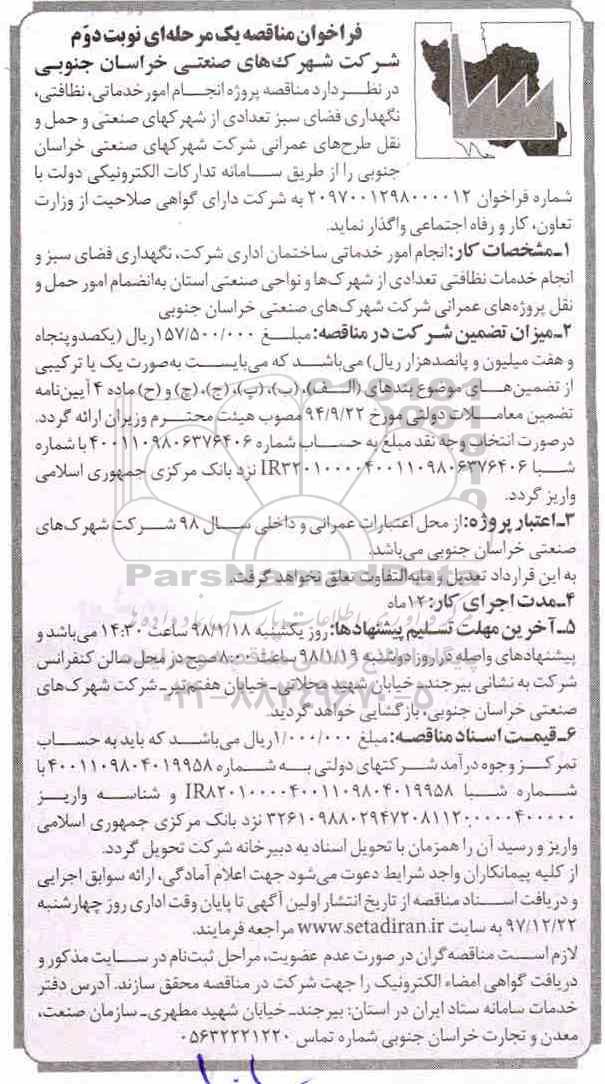 فراخوان مناقصه یک مرحله‌ای نوبت دوّم
شرکت شهرک‌های صنعتی خراسان جنوبی
در نظر دارد مناقصه پروژه انجام امور خدماتی، نظافتی،
نگهداری فضای سبز تعدادی از شهرکهای صنعتی و حمل و
نقل طرح‌های عمرانی شرکت شهرکهای صنعتی خراسان
جنوبی را از طریق سامانه تدارکات الکترونیکی دولت با
شماره فراخوان ۲۰۹۷۰۰۱۲۹۸۰۰۰۰۱۲ به شرکت دارای گواهی صلاحیت از وزارت
تعاون، کار و رفاه اجتماعی واگذار نماید.
۱ـ مشخصات کار: انجام امور خدماتی ساختمان اداری شرکت، نگهداری فضای سبز و
انجام خدمات نظافتی تعدادی از شهرک‌ها و نواحی صنعتی استان به‌انضمام امور حمل و
نقل پروژه‌های عمرانی شرکت شهرک‌های صنعتی خراسان جنوبی
۲ـ میزان تضمین شرکت در مناقصه: مبلغ ۱۵۷/۵۰۰/۰۰۰ ریال (یکصدوپنجاه
و هفت میلیون و پانصدهزار ریال) می‌باشد که می‌بایست به‌صورت یک یا ترکیبی
از تضمین‌های موضوع بندهای (الف)، (ب)، (پ)، (ج)، (چ) و (ح) ماده ۴ آیین‌نامه
تضمین معاملات دولتی مورخ ۹۴/۹/۲۲ مصوب هیئت محترم وزیران ارائه گردد.
درصورت انتخاب وجه نقد مبلغ به حساب شماره ۴۰۰۱۱۰۹۸۰۶۳۷۶۴۰۶ با شماره
شبا IR۳۲۰۱۰۰۰۰۴۰۰۱۱۰۹۸۰۶۳۷۶۴۰۶ نزد بانک مرکزی جمهوری اسلامی
واریز گردد.
۳ـ اعتبار پروژه: از محل اعتبارات عمرانی و داخلی سال ۹۸ شرکت شهرک‌های
صنعتی خراسان جنوبی می‌باشد.
به این قرارداد تعدیل و مابه‌التفاوت تعلق نخواهد گرفت.
ParsNamadData
۴ـ مدت اجرای کار: ۱۲ ماه
۵ـ آخرین مهلت تسلیم پیشنهادها: روز یکشنبه ۹۸/۱/۱۸ ساعت ۱۴:۳۰ می‌باشد و
پیشنهادهای واصله در روز دوشنبه ۹۸/۱/۱۹ ساعت ۸:۰۰ صبح در محل سالن کنفرانس
شرکت به نشانی بیرجند ـ خیابان شهید محلاتی ـ خیابان هفتم تیر ـ شرکت شهرک‌های
صنعتی خراسان جنوبی، بازگشایی خواهد گردید.
۰۲۱-۸۸۳۴۹۶۷۰-۵
۶ـ قیمت اسناد مناقصه: مبلغ ۱/۰۰۰/۰۰۰ ریال می‌باشد که باید به حساب
تمرکز وجوه درآمد شرکتهای دولتی به شماره ۴۰۰۱۱۰۹۸۰۴۰۱۹۹۵۸ با
شماره شبا IR۸۲۰۱۰۰۰۰۴۰۰۱۱۰۹۸۰۴۰۱۹۹۵۸ و شناسه واریز
۳۲۶۱۰۹۸۸۰۲۹۴۷۲۰۸۱۱۲۰۰۰۰۰۴۰۰۰۰۰ نزد بانک مرکزی جمهوری اسلامی
واریز و رسید آن را همزمان با تحویل اسناد به دبیرخانه شرکت تحویل گردد.
از کلیه پیمانکاران واجد شرایط دعوت می‌شود جهت اعلام آمادگی، ارائه سوابق اجرایی
و دریافت اسناد مناقصه از تاریخ انتشار اولین آگهی تا پایان وقت اداری روز چهارشنبه
۹۷/۱۲/۲۲ به سایت www.setadiran.ir مراجعه فرمایند.
لازم است مناقصه‌گران در صورت عدم عضویت، مراحل ثبت‌نام در سایت مذکور و
دریافت گواهی امضاء الکترونیک را جهت شرکت در مناقصه محقق سازند. آدرس دفتر
خدمات سامانه ستاد ایران در استان: بیرجند ـ خیابان شهید مطهری ـ سازمان صنعت،
معدن و تجارت خراسان جنوبی شماره تماس ۰۵۶۳۲۲۲۱۲۲۰